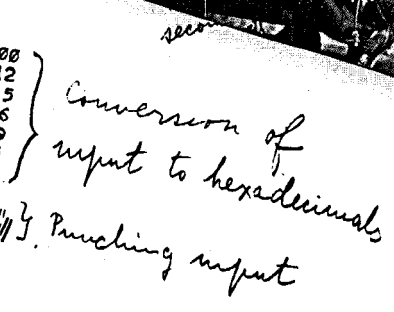 secon
00
2
5
6
Conversion of
input to hexadecimals
}. Punching input